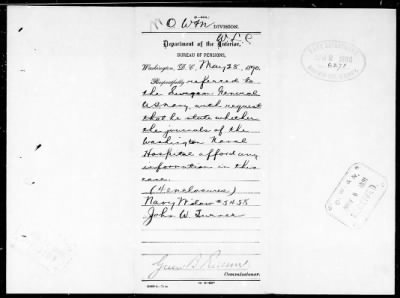 O W & N DIVISION.
Department of the Interior,
BUREAU OF PENSIONS,
Washington, D. C. May 28, 1890.
Respectfully referred to
the Surgeon General
U.S. Navy, with request
that he state whether
the journals of the
Washington Naval
Hospital afford any
information in this
case.
(4 enclosures)
Navy Widow # 5458
John W. Turner
Commissioner.